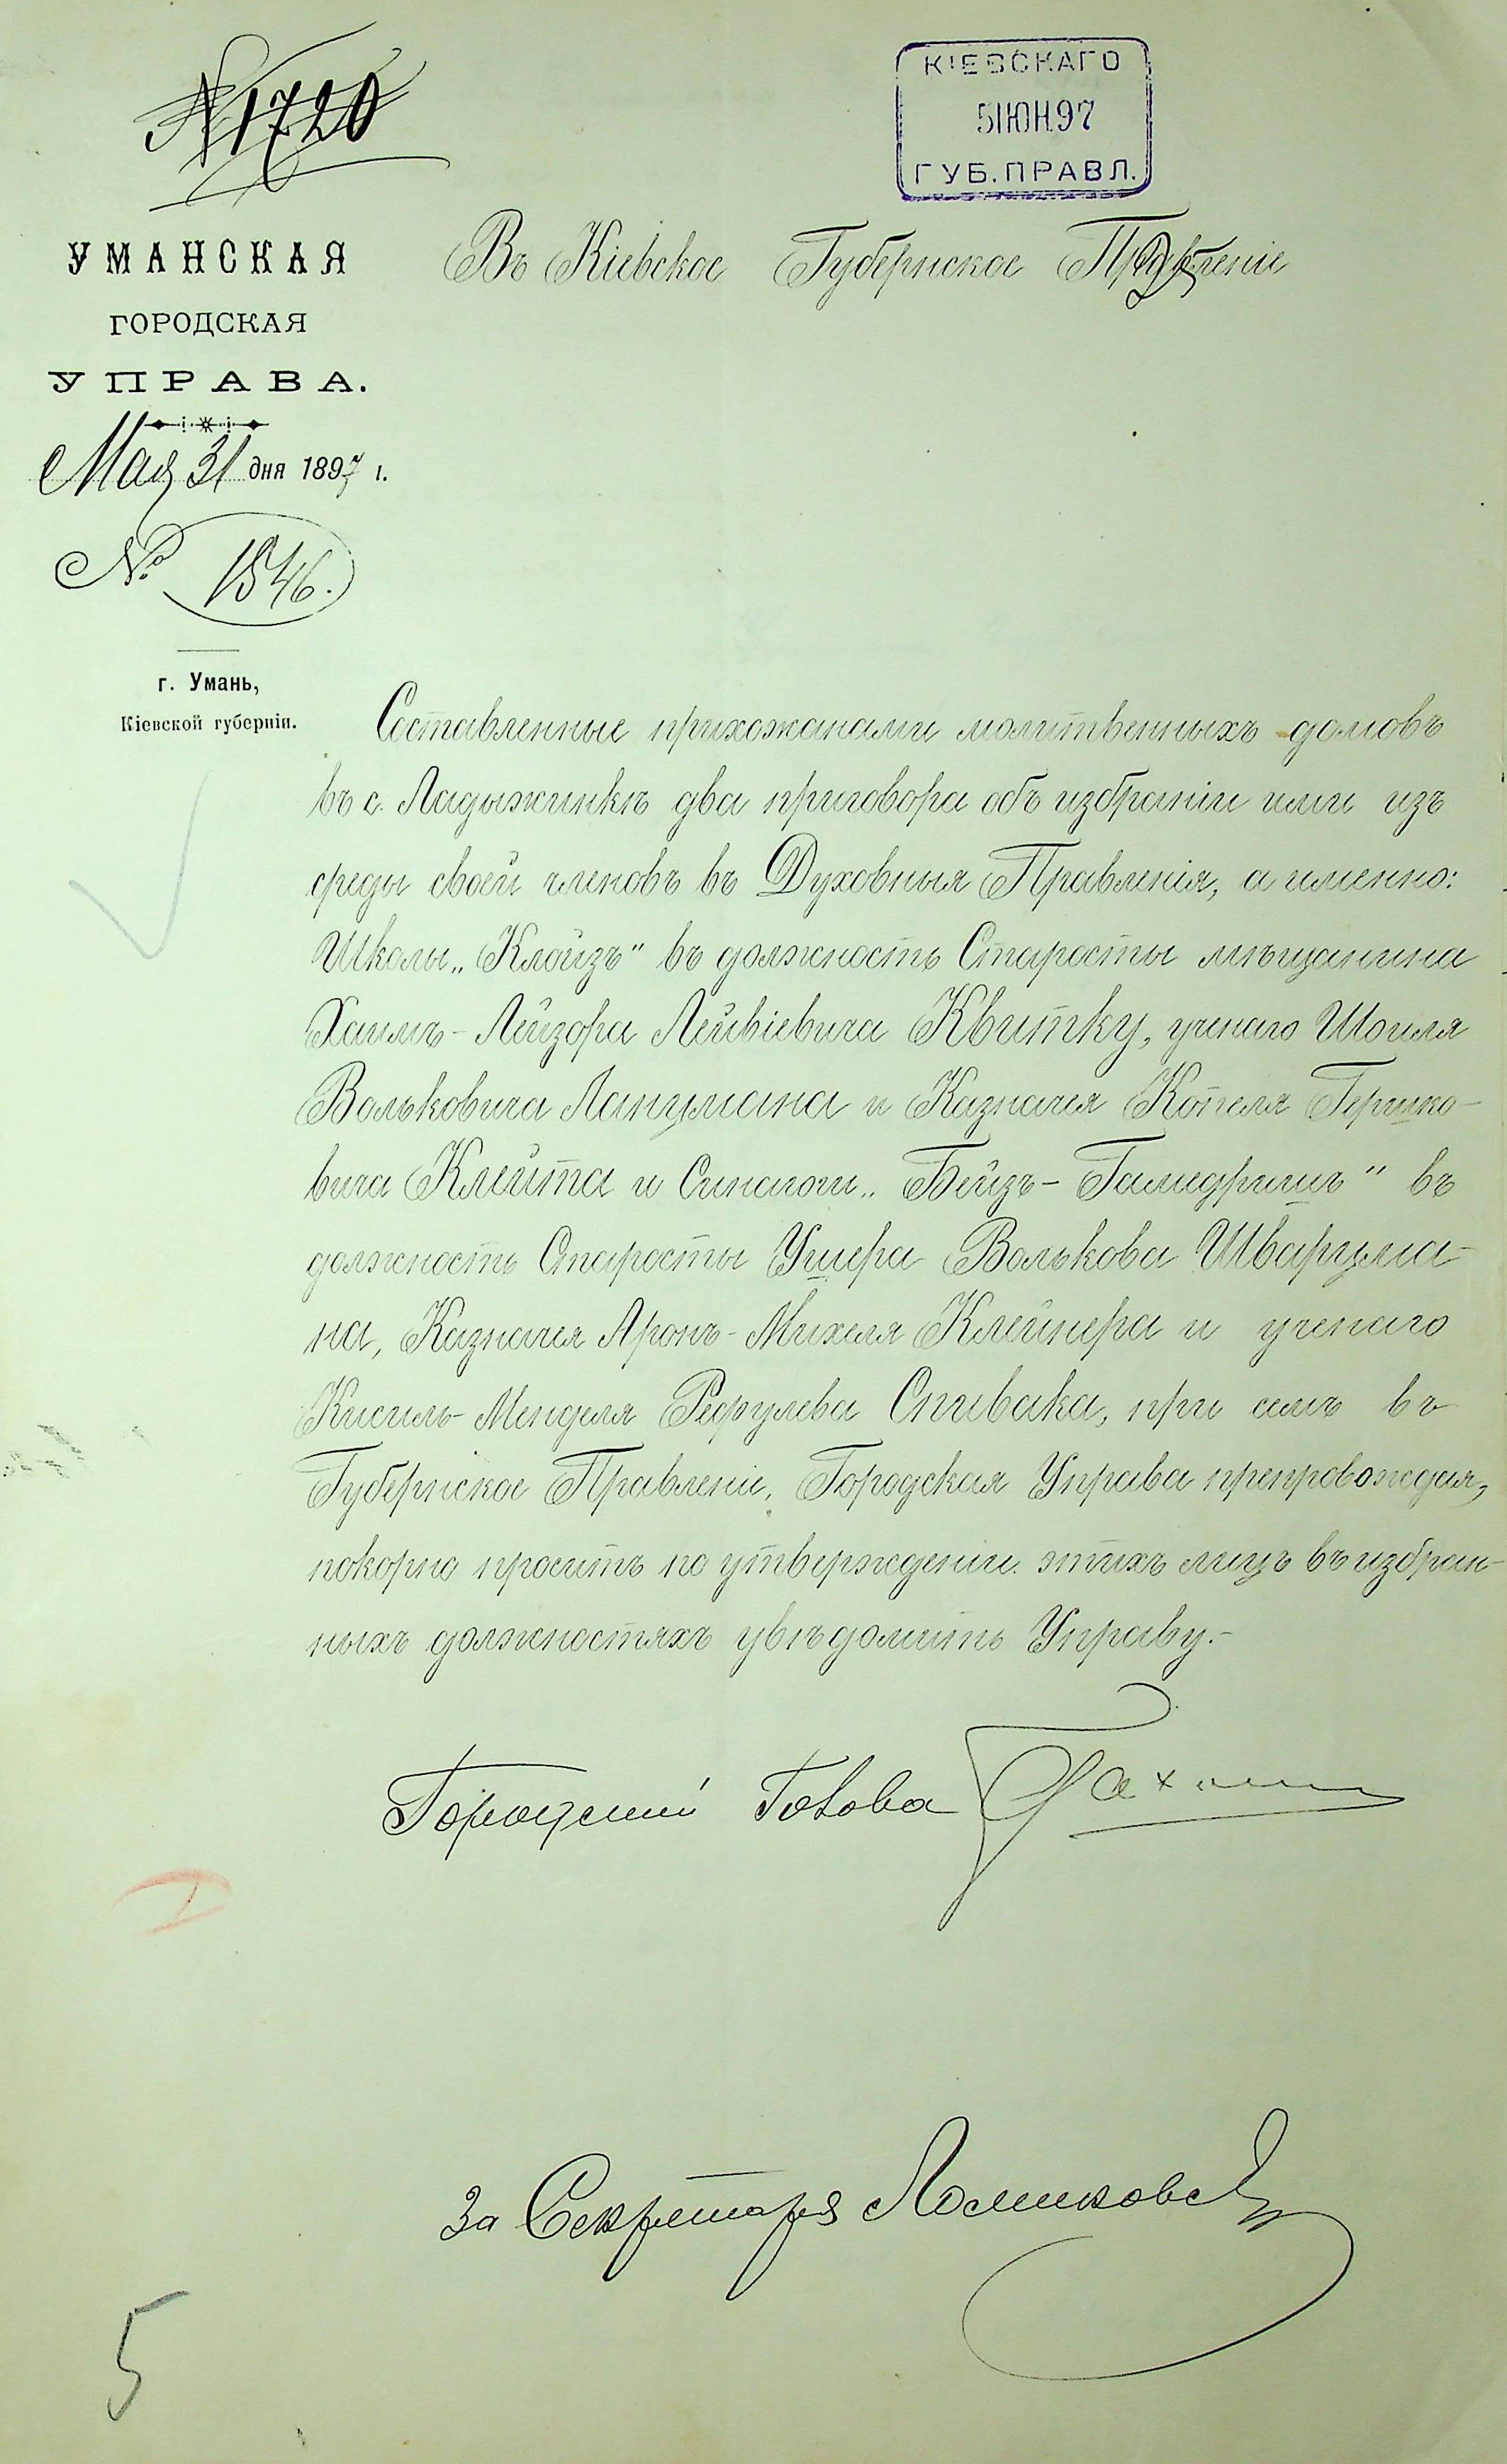 № 1720
КІЕВСКАГО
5 ІЮН.97
ГУБ. ПРАВЛ.
УМАНСКАЯ
ГОРОДСКАЯ
УПРАВА.
Мая 31 дня 1897 г.
№ 1546.
г. Умань,
Кіевской губерніи.
Въ Кіевское Губернское Правленіе
Составленные прихожанами молитвенныхъ домовъ
въ с. Ладыжинкѣ два приговора объ избраніи ими изъ
среды своей членовъ въ Духовныя Правленія, а именно:
Школы „Клойзъ" въ должность Старосты мѣщанина
Хаимъ-Лейзора Лейвіевича Квитку, ученаго Шоиля
Вольковича Ланцмана и Казначея Копеля Гершко-
вича Клейта и Синагоги „Бейзъ-Гамедришъ" въ
должность Старосты Ушера Волькова Шварцма-
на, Казначея Аронъ-Михеля Клейнера и ученаго
Кисиль-Менделя Рефулева Спивака, при семъ въ
Губернское Правленіе, Городская Управа препровождая,
покорно проситъ по утвержденіи этихъ лицъ въ избран-
ныхъ должностяхъ увѣдомить Управу.-
Городской Голова
За Секретаря
5